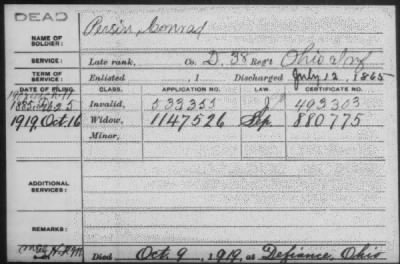 DEAD
NAME OF SOLDIER: Persin, Conrad
SERVICE: Late rank, Co. D, 38 Reg't Ohio Inf
TERM OF SERVICE: Enlisted , 1 Discharged July 12, 1865
DATE OF FILING. CLASS. APPLICATION NO. LAW. CERTIFICATE NO.
1885, 25 Invalid, 533355 J 493303
1919, Oct. 16 Widow, 1147526 Sep. 880775
Minor,
ADDITIONAL SERVICES:
REMARKS:
Died Oct. 9, 1919, at Defiance, Ohio